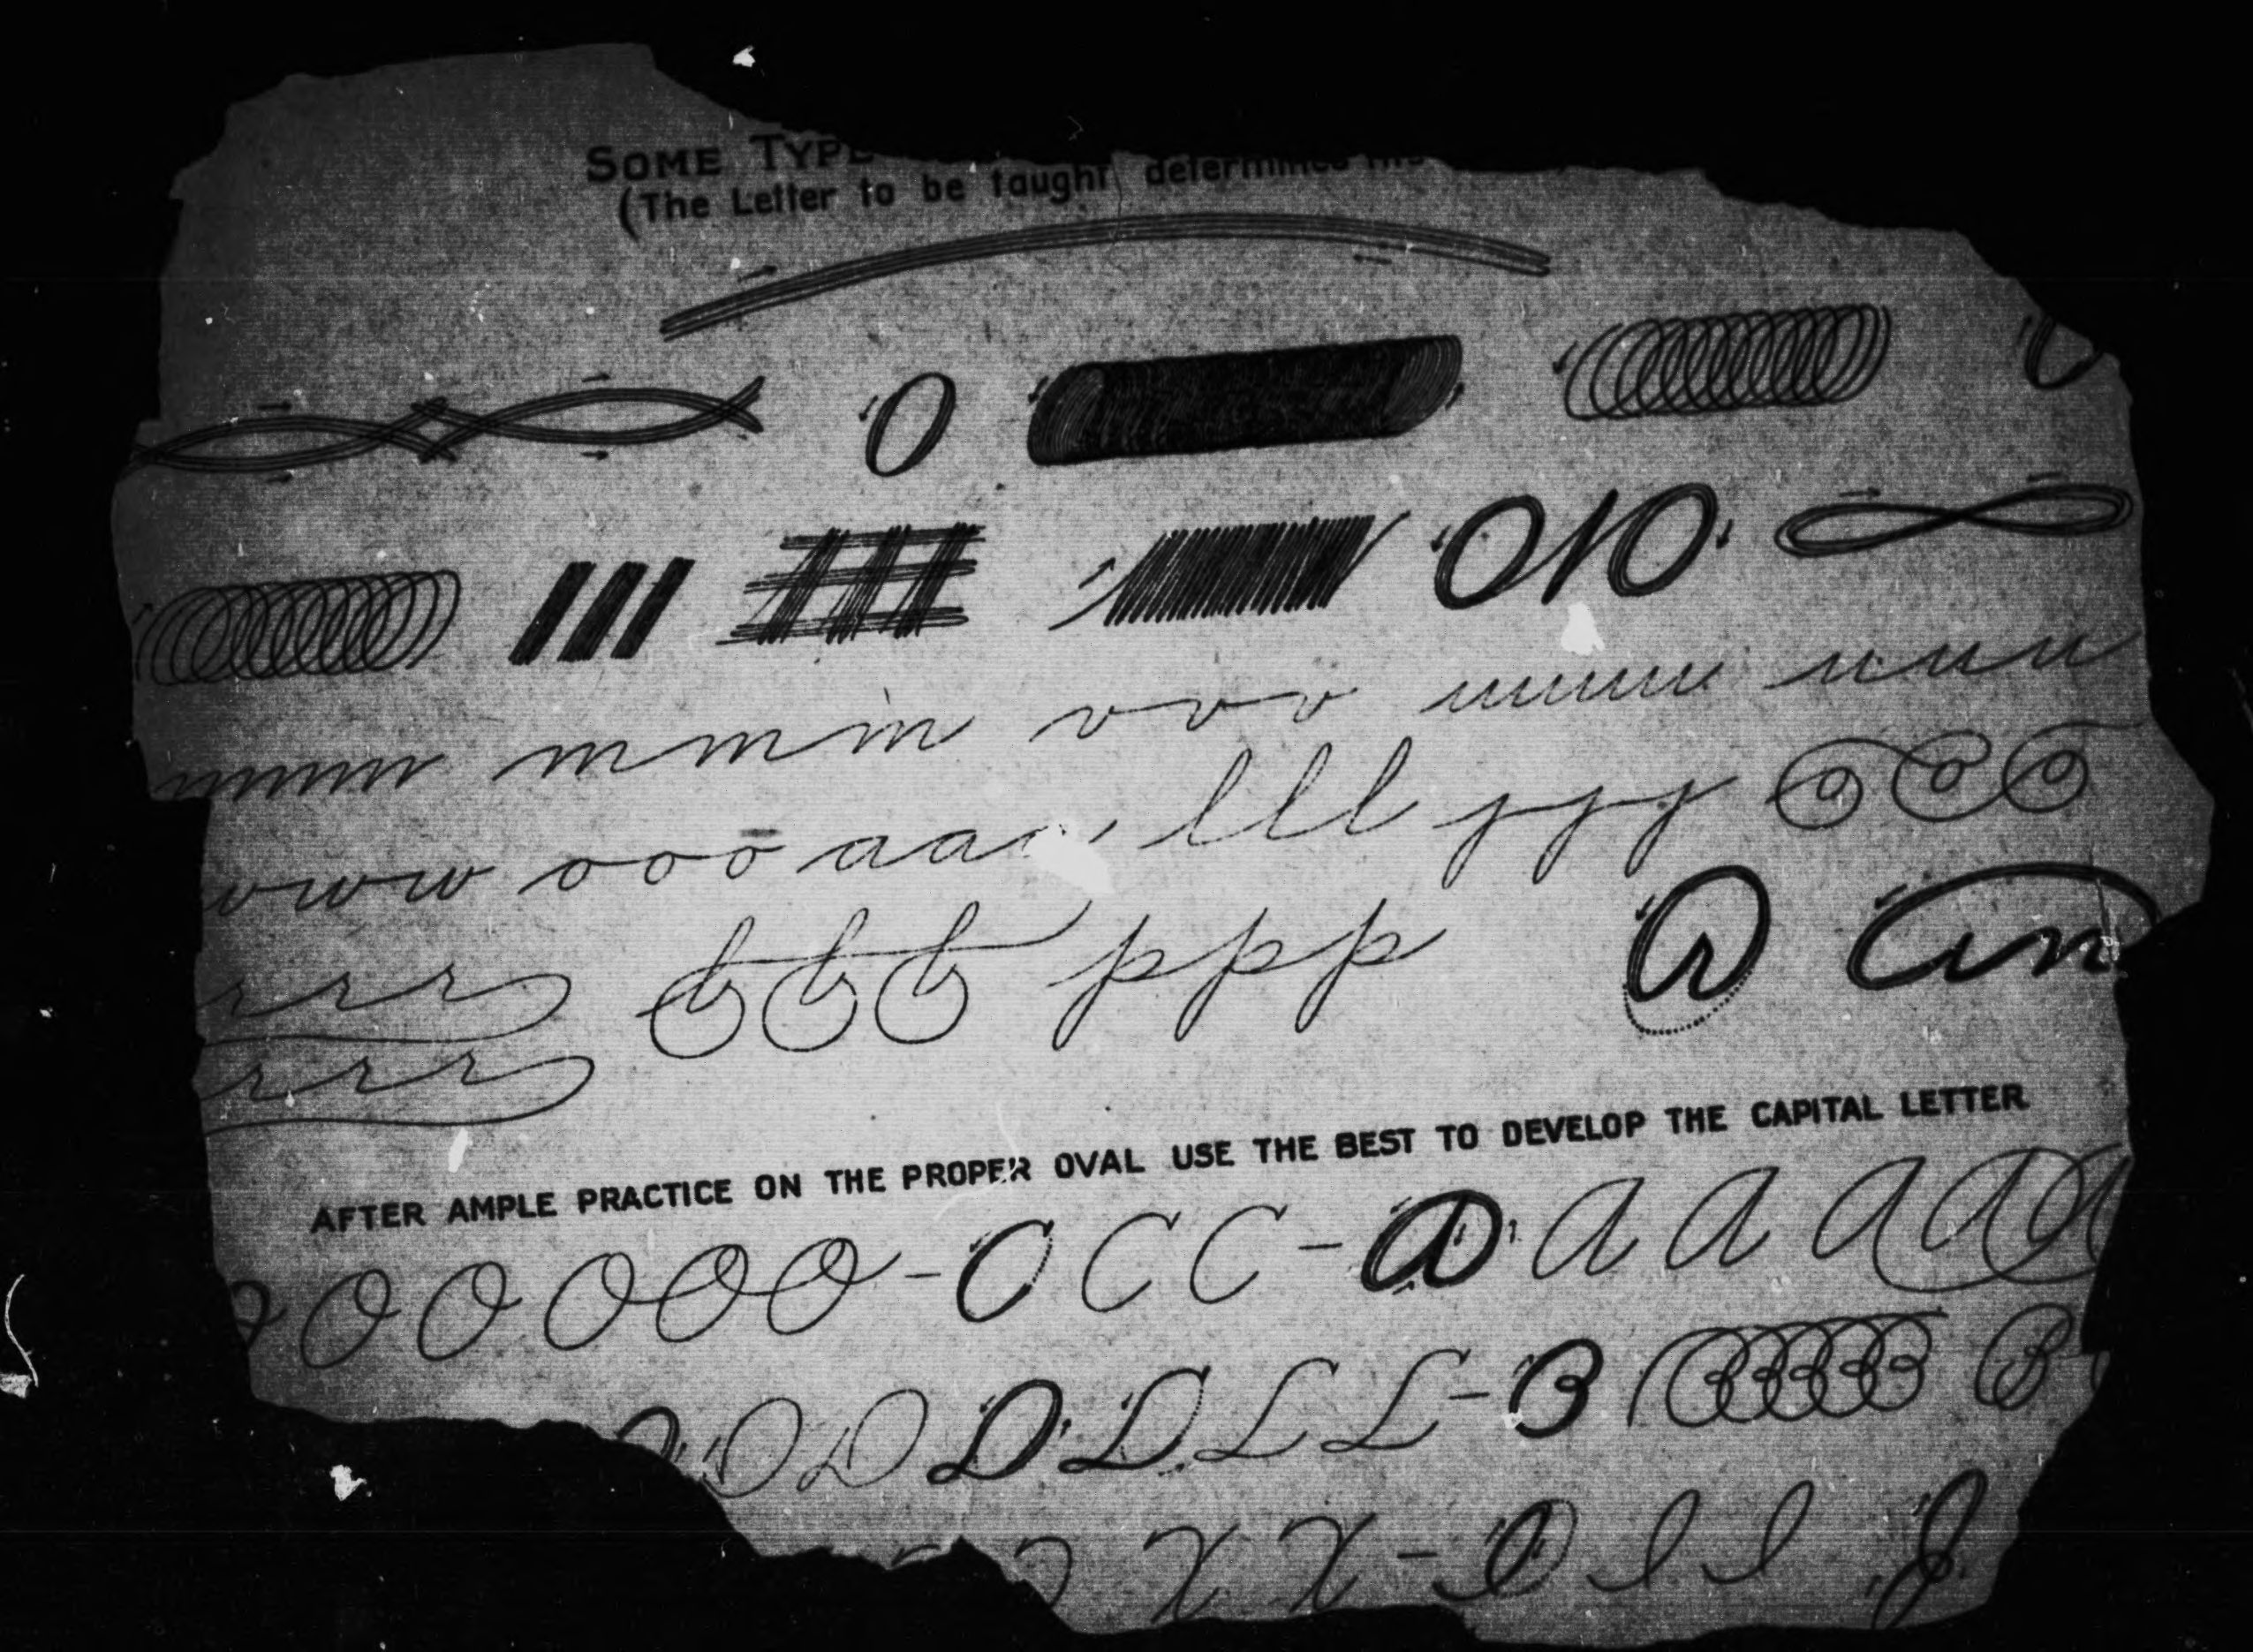 SOME TYPE
(The Letter to be taught determines the
mmmm m m m v v v uuuuu u u u
w w w o o o a a a l l l y y y
r r r b b b p p p
r r r
AFTER AMPLE PRACTICE ON THE PROPER OVAL USE THE BEST TO DEVELOP THE CAPITAL LETTER
O O O O O O - C C C - A A A A A A
D D D D L L L - B B B B B B B
X X - I I I J